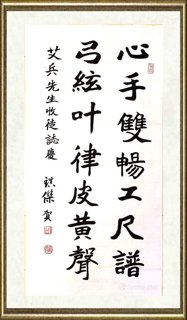 心手雙暢工尺譜
弓絃叶律皮黃聲
艾兵先生收徒誌慶
祺傑 賀